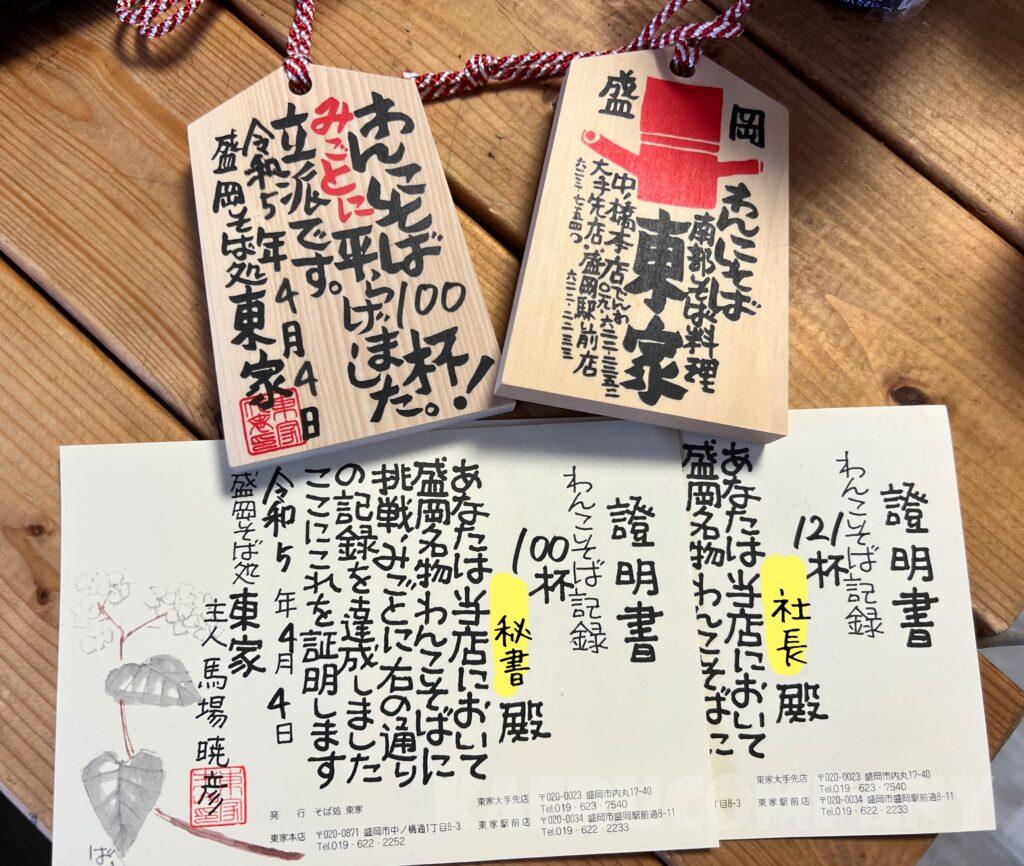 わんこそば100杯!
みごとに平らげました。
立派です。
令和5年4月4日
盛岡そば処東家
盛岡
わんこそば
南部そば料理
東家
中ノ橋本店でんわ〇一九・六二二・二二五二
大手先店・盛岡駅前店
六二三・七五四〇 六二二・二二三三
證明書
わんこそば記録
100杯
秘書殿
あなたは当店において
盛岡名物わんこそばに
挑戦、みごとに右の通り
の記録を達成しました
ここにこれを証明します
令和5年4月4日
盛岡そば処東家
主人 馬場暁彦
ば
発行 そば処 東家
東家本店 〒020-0871 盛岡市中ノ橋通1丁目8-3
Tel.019・622・2252
東家大手先店 〒020-0023 盛岡市内丸17-40
Tel.019・623・7540
東家駅前店 〒020-0034 盛岡市盛岡駅前通8-11
Tel.019・622・2233
證明書
わんこそば記録
121杯
社長殿
あなたは当店において
盛岡名物わんこそばに
東家大手先店 〒020-0023 盛岡市内丸17-40
Tel.019・623・7540
丁目8-3
東家駅前店 〒020-0034 盛岡市盛岡駅前通8-11
Tel.019・622・2233